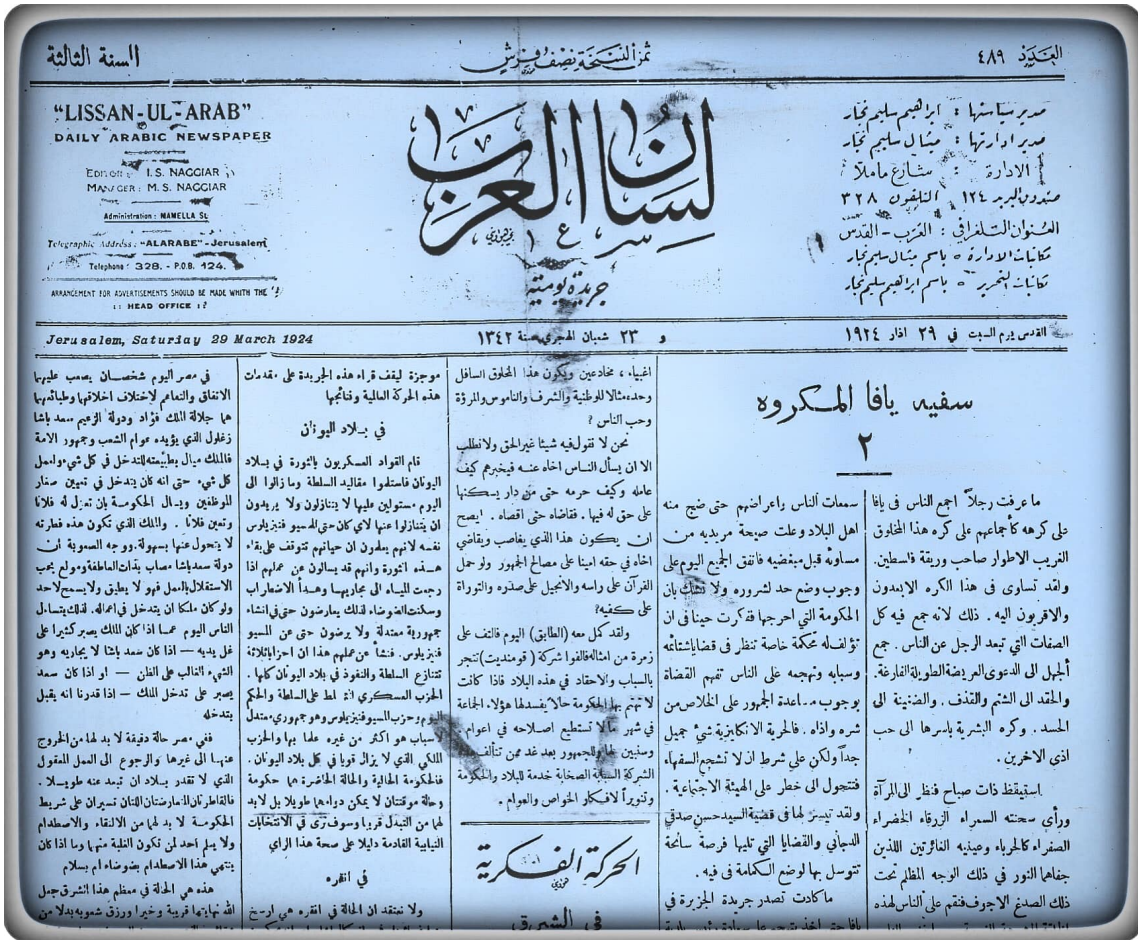 العدد ٤٨٩
ثمن النسخة نصف غرش
السنة الثالثة
"LISSAN-UL-ARAB"
DAILY ARABIC NEWSPAPER
EDITOR: I. S. NAGGIAR
MANAGER: M. S. NAGGIAR
Administration: MAMELLA St.
Telegraphic Address: "ALARABE"-Jerusalem
Telephone: 328. - P.O.B. 124.
ARRANGEMENT FOR ADVERTISEMENTS SHOULD BE MADE WHITH THE
HEAD OFFICE
لسان العرب
جريدة يومية
مدير سياستها : ابراهيم سليم نجار
مدير ادارتها : ميشال سليم نجار
الادارة : شارع ماملا
صندوق البريد ١٢٤ التلفون ٣٢٨
العنوان التلغرافي : العرب - القدس
مكاتبات الادارة باسم ميشال سليم نجار
مكاتبات التحرير باسم ابراهيم سليم نجار
القدس يوم السبت في ٢٩ اذار ١٩٢٤
و ٢٣ شعبان الهجري سنة ١٣٤٢
Jerusalem, Saturday 29 March 1924
سفيه يافا المكروه
٢
ما عرفت رجلاً اجمع الناس في يافا
على كرهه كأجماعهم على كره هذا المخلوق
الغريب الاطوار صاحب وريقة فلسطين.
ولقد تساوى في هذا الكره الابعدون
والاقربون اليه . ذلك لانه جمع فيه كل
الصفات التي تبعد الرجل عن الناس . جمع
الجهل الى الدعوى العريضة الطويلة الفارغة.
والحقد الى الشتم والقذف . والضغينة الى
الحسد . وكره البشرية باسرها الى حب
اذى الآخرين.
استيقظ ذات صباح فنظر الى المرآة
ورأى سحنته السمراء الزرقاء الخضراء
الصفراء كالحرباء وعينيه الغائرتين اللذين
جفاهما النور في ذلك الوجه المظلم تحت
ذلك الصدغ الاجوف فنقم على الناس لهذه
سمعات الناس واعراضهم حتى ضج منه
اهل البلاد وعلت صيحة مريديه من
مساوئه قبل مبغضيه فاتفق الجميع اليوم على
وجوب وضع حد لشروره ولا نشك بان
الحكومة التي احرجها فكرت حينا في ان
تؤلف له محكمة خاصة تنظر في قضايا شتائمه
وسبابه وتهجمه على الناس تفهم القضاة
بوجوب مساعدة الجمهور على الخلاص من
شره واذاه . فالحرية الانكليزية شيء جميل
جداً ولكن على شرط ان لا تشجع السفهاء
فتتحول الى خطر على الهيئة الاجتماعية .
ولقد تيسر لها في قضية السيد حسن صدقي
الدجاني والقضايا التي تليها فرصة سانحة
تتوسل بها لوضع الكمامة في فيه .
ما كادت تصدر جريدة الجزيرة في
اغبياء ، مخادعين ويكون هذا المخلوق السافل
وحده مثالا للوطنية والشرف والناموس والمرؤة
وحب الناس ؟
نحن لا نقول فيه شيئا غير الحق ولا نطلب
الا ان يسأل الناس اخاه عنه فيخبرهم كيف
عامله وكيف حرمه حتى من دار يسكنها
على حق له فيها . فقاضاه حتى اقصاه . ايصح
ان يكون هذا الذي يغاصب ويقاضي
اخاه في حقه امينا على مصالح الجمهور ولو حمل
القرآن على راسه والانجيل على صدره والتوراة
على كتفيه؟
ولقد كمل معه (الطابق) اليوم فالتف على
زمرة من امثاله فالفوا شركة ( قومنديت) تتجر
بالسباب والاحقاد في هذه البلاد فاذا كانت
لا تهتم بها الحكومة حالا يفسد لها هؤلاء الجماعة
في شهر ما لا تستطيع اصلاحه في اعوام .
وسنبين لها وللجمهور بعد غد ممن تتألف هذه
الشركة السبابة الصخابة خدمة للبلاد والحكومة
وتنويراً لافكار الخواص والعوام .
الحركة الفكرية
في الشرق
موجزة ليقف قراء هذه الجريدة على مقدمات
هذه الحركة العالية ونتائجها
في بلاد اليونان
قام القواد العسكريون بالثورة في بلاد
اليونان فاستلموا مقاليد السلطة وما زالوا الى
اليوم مستولين عليها لا يتنازلون ولا يريدون
ان يتنازلوا عنها لاي كان حتى المسيو فنيزيلوس
نفسه لانهم يعلمون ان حياتهم تتوقف على بقاء
هذه الثورة وانهم قد يسالون عن عملهم اذا
رجعت المياه الى مجاريها وهدأ الاضطراب
وسكنت الضوضاء لذلك يعارضون حتى في انشاء
جمهورية معتدلة ولا يرضون حتى عن المسيو
فنيزيلوس. فنشأ عن عملهم هذا ان احزابا ثلاثة
تتنازع السلطة والنفوذ في بلاد اليونان كلها .
الحزب العسكري المتسلط على السلطة والحكم
اليوم وحزب المسيو فنيزيلوس وهو جمهوري معتدل
لاسباب هو اكثر من غيره علما بها والحزب
الملكي الذي لا يزال قويا في كل بلاد اليونان .
فالحكومة الحالية والحالة الحاضرة هما حكومة
وحالة موقتتان لا يمكن دوامهما طويلا بل لا بد
لهما من التبدل قريبا وسوف نرى في الانتخابات
النيابية القادمة دليلا على صحة هذا الراي
في انقره
ولا نعتقد ان الحالة في انقره هي ارسخ
في مصر اليوم شخصان يصعب عليهما
الاتفاق والتفاهم لاختلاف اخلاقهما وطبائعهما
هما جلالة الملك فؤاد ودولة الزعيم سعد باشا
زغلول الذي يؤيده عوام الشعب وجمهور الامة
فالملك ميال بطبيعته للتدخل في كل شيء ولعمل
كل شيء حتى انه كان يتدخل في تعيين صغار
الموظفين ويسال الحكومة بان تعزل له فلانا
وتعين فلانا . والملك الذي تكون هذه فطرته
لا يتحول عنها بسهولة. ووجه الصعوبة ان
دولة سعد باشا مصاب بذات العاطفة ومولع بحب
الاستقلال بالعمل فهو لا يطيق ولا يسمح لاحد
ولو كان ملكا ان يتدخل في اعماله. لذلك يتساءل
الناس اليوم عما اذا كان الملك يصبر كثيرا على
غل يديه — اذا كان سعد باشا لا يجاريه وهو
الشيء الغالب على الظن — او اذا كان سعد
يصبر على تدخل الملك — اذا قدرنا انه يقبل
بتدخله
ففي مصر حالة دقيقة لا بد لها من الخروج
عنها الى غيرها والرجوع الى العمل المقول
الذي لا تقدر بلاد ان تبعد عنه طويلا .
فالقاطرتان المتعارضتان اللتان تسيران على شريط
الحكومة لا بد لهما من الالتقاء والاصطدام
ولا يعلم احد لمن تكون الغلبة منهما وما اذا كان
ينتهي هذا الاصطدام بضوضاء ام بسلام
هذه هي الحالة في معظم هذا الشرق جعل
الله نهايتها قريبة وخيرا ورزق شعوبه بدلا من